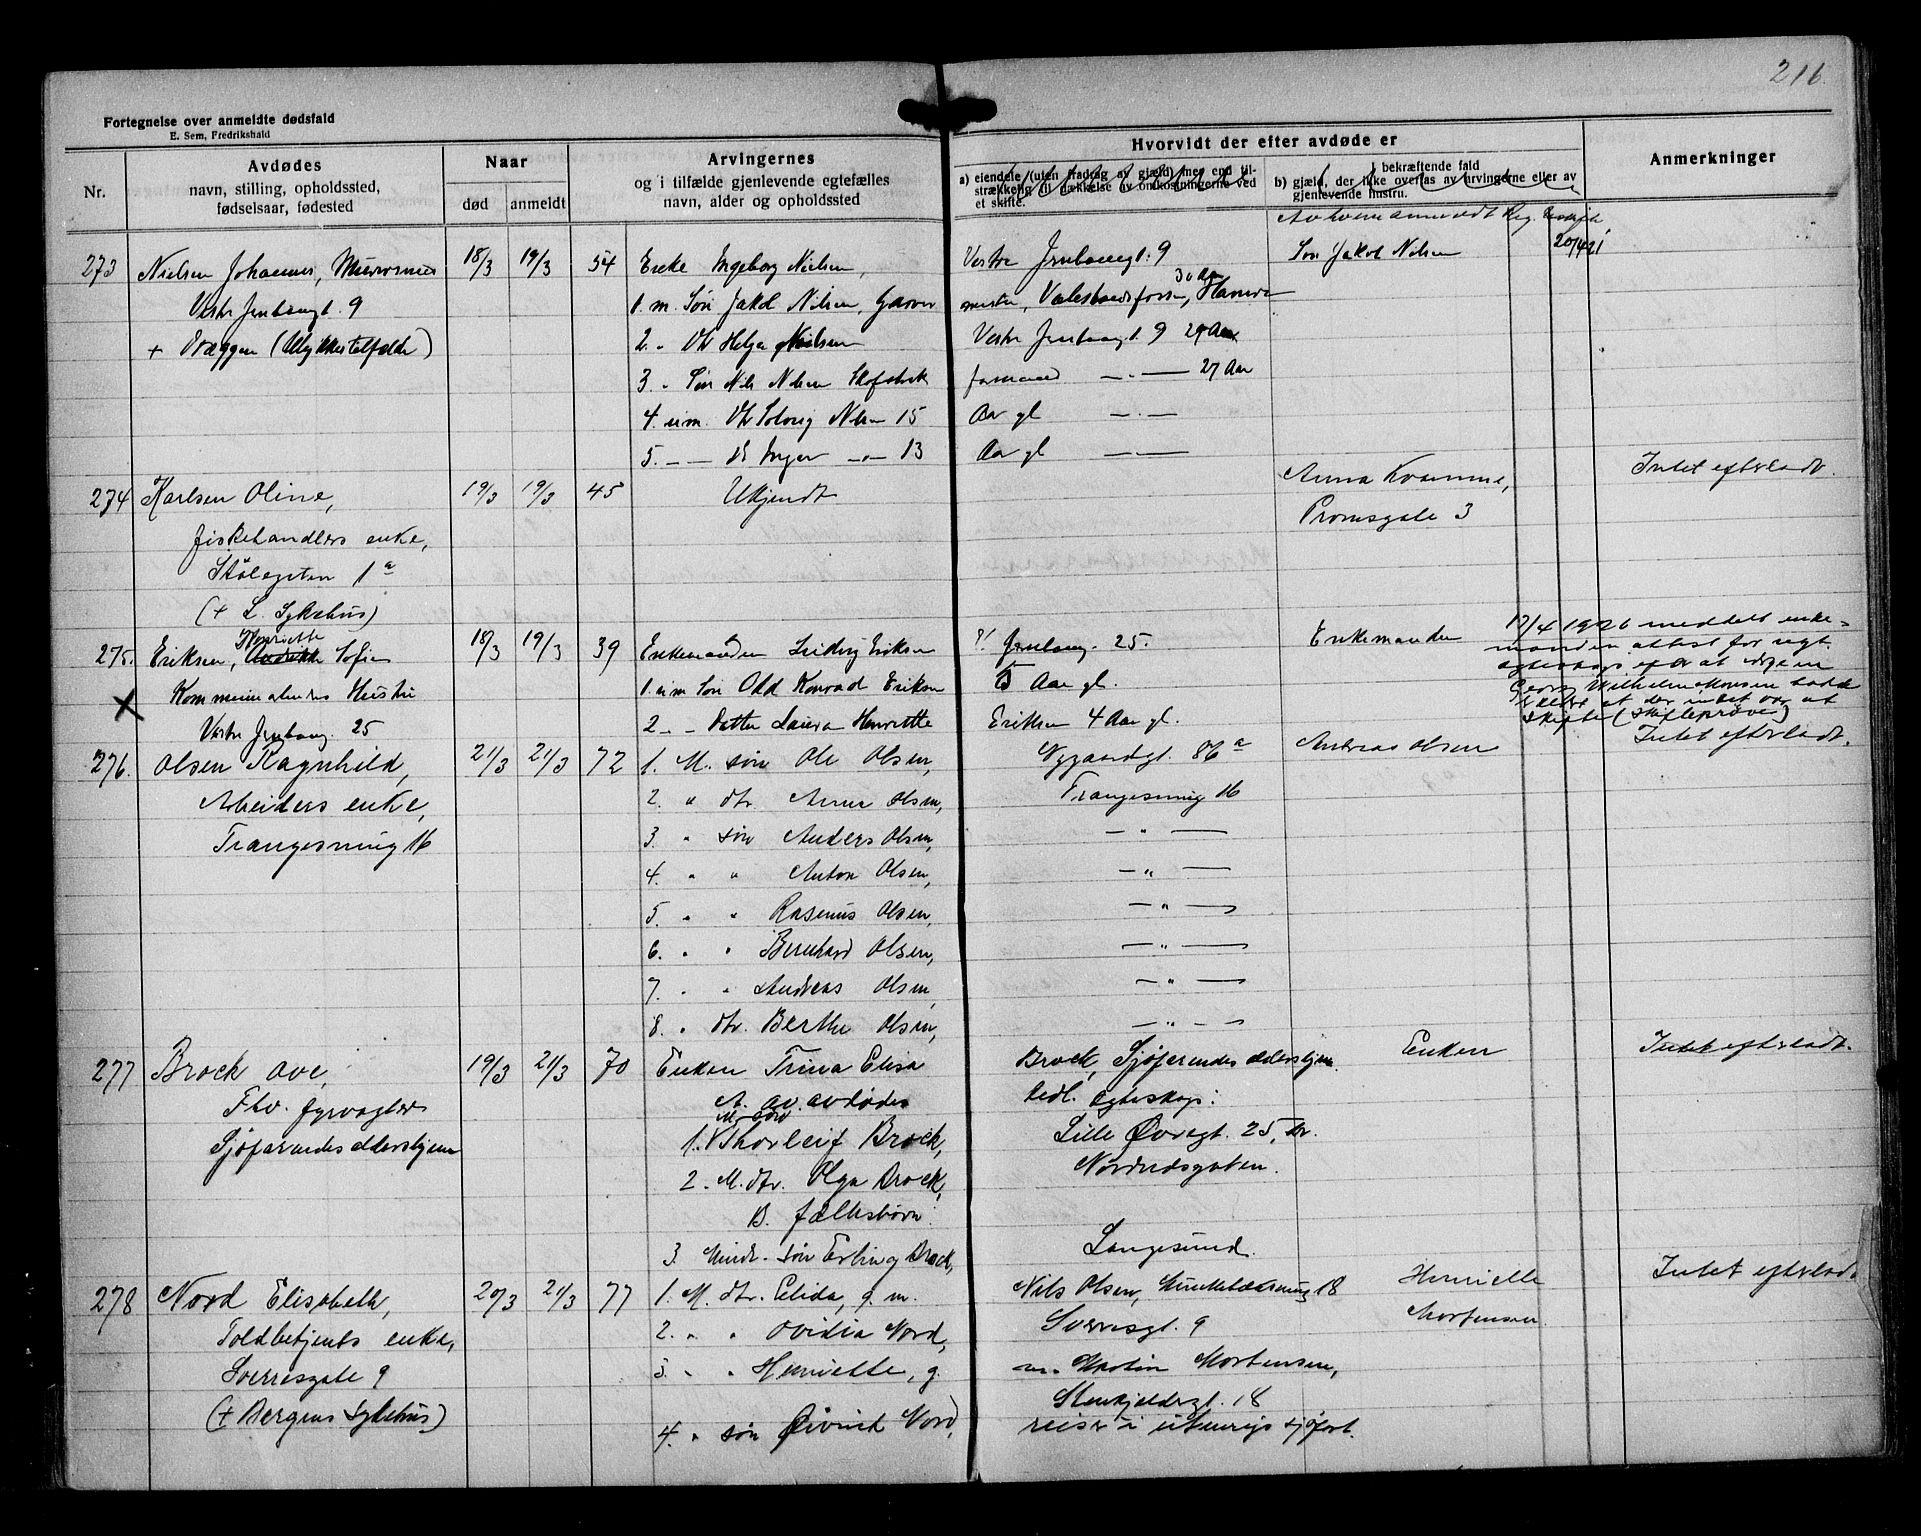 216.
Fortegnelse over anmeldte dødsfald
E. Sem, Fredrikshald
Nr.
Avdødes
navn, stilling, opholdssted,
fødselsaar, fødested
Naar
død
anmeldt
Arvingernes
og i tilfælde gjenlevende egtefælles
navn, alder og opholdssted
Hvorvidt der efter avdøde er
a) eiendele (uten fradrag av gjæld) mer end til-
strækkelig til dækkelse av omkostningerne ved
et skifte.
I bekræftende fald
b) gjæld, der ikke overtas av arvingerne eller av
gjenlevende hustru.
Anmerkninger
Av hvem anmeldt
20/4 21
273 Nielsen Johannes, 18/3 19/3 54 Enke Ingeborg Nielsen, Vestre Jrnbanegt. 9 Søn Jakob Nilsen
Vestre Jrnbanegt. 9 1. m. Søn Jakob Nilsen, Garver mester, 30 Aar
+ Væggen (Ulykkestilfælde) 2. " Dtr Helga Nielsen Vestre Jrnbanegt. 9 29 Aar
3. " Søn Nils Nilsen Skofabrik formand — " — 27 Aar
4. um. Dtr Solveig Nilsen 15 Aar gl — " —
5. — — D Inger — " — 13 Aar gl — " —
274 Karlsen Oline, 19/3 19/3 45 Ukjendt Anna Kvamme, Intet efterladt.
fiskehandlers enke, Promsgate 3
Stølegaten 1a
(+ L. Sykehus)
275. Eriksen, Henriette Sofie 18/3 19/3 39 Enkemanden Ludvig Eriksen Jrnbaneg. 25. Enkemanden
Hustru 1. um Søn Konrad Eriksen 5 Aar gl.
Vestre Jrnbaneg. 25 2 — " — Datter Laura Henriette Eriksen 4 Aar gl.
17/4 1926 meddelt enke-
manden attest for nyt
Georg Wilhelm Monsen hadde
erklært at der intet var at
skifte (skifteprøve)
276. Olsen Ragnhild, 21/3 21/3 72 1. M. søn Ole Olsen, Nygaardgt. 86a Andreas Olsen Intet efterladt.
Arbeiders enke, 2. " dtr. Anna Olsen, Trangesmug 16
Trangesmug 16 3. " søn Anders Olsen, — " —
4. " " Anton Olsen, — " —
5. " " Rasmus Olsen, — " —
6. " " Bernhard Olsen, — " —
7. " " Andreas Olsen, — " —
8. " dtr. Berthe Olsen, — " —
277 Brock Ove, 19/3 21/3 70 Enken Trina Elisa Brock, Sjøfarendes aldershjem. Enken Intet efterladt.
Fhv. fyrvogter A. av avdødes tidl. egteskap:
Sjøfarendes aldershjem 1. M. søn Thorleif Brock, Lille Øvregt. 25,
2. M. dtr. Olga Brock, Nordnesgaten.
B. fællesbørn:
3. Mindr. søn Erling Brock, Langesund.
278 Nord Elisabeth, 20/3 21/3 77 1. M. dtr. Elida, g. m. Nils Olsen, 18 Henriette Mortensen Intet efterladt
Toldbetjents enke, 2. " " Ovidia Nord, Sverresgt. 9
Sverresgate 9 3. " " Henriette, g. m. Martin Mortensen,
(+ Bergens Sykehus) Stenkjeldergt. 18
4. " søn Øivind Nord, reiser i utenrigs sjøfart.